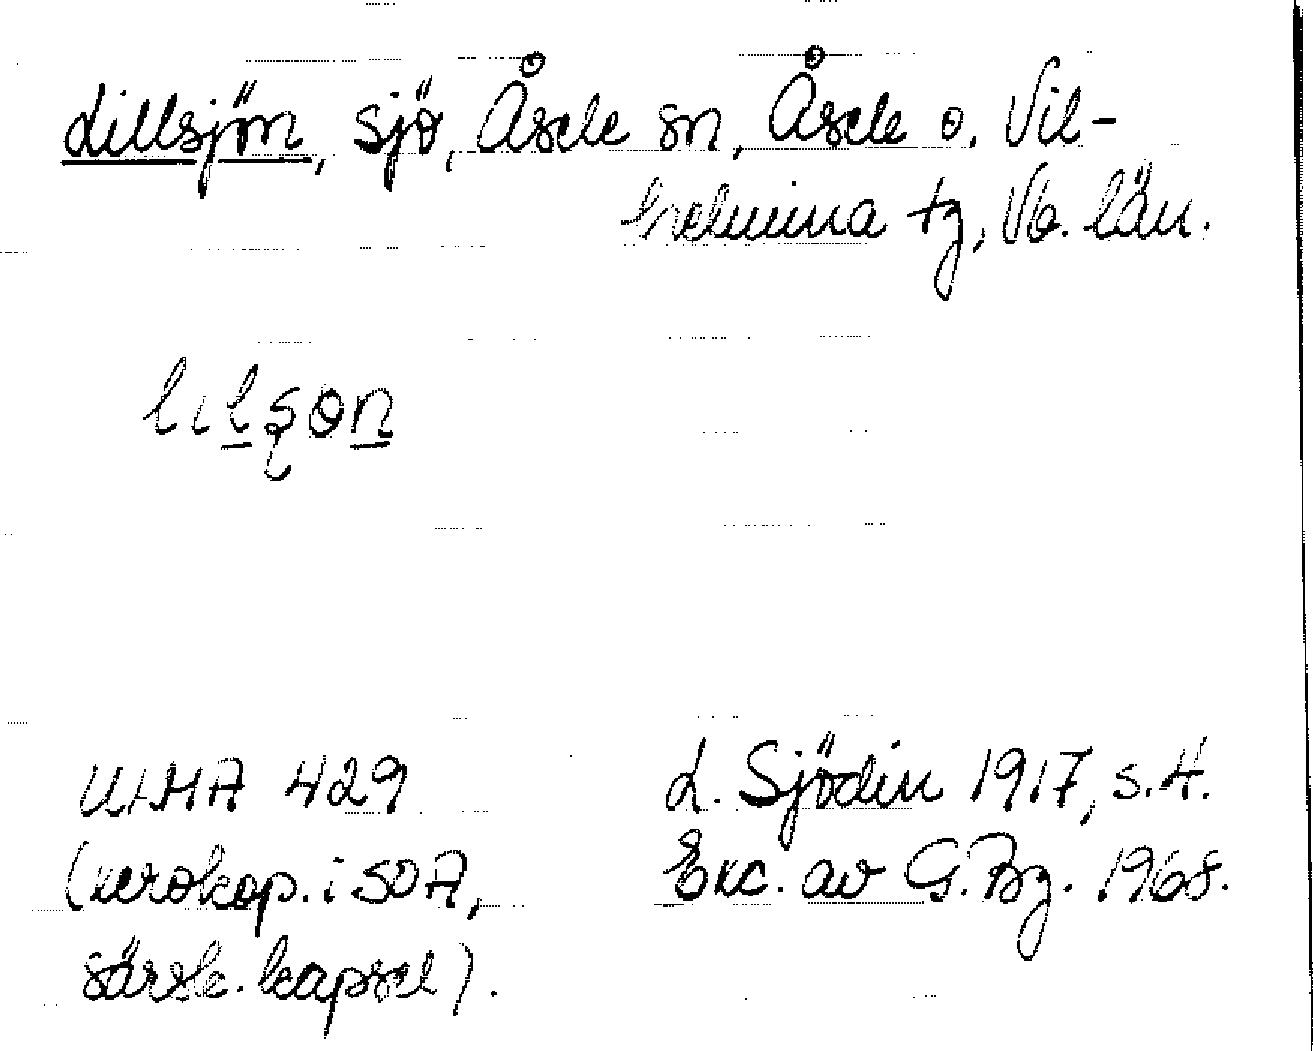 Lillsjön, sjö, Åsele sn, Åsele o. Vil-
helmina tg, Vb. län.
ULMA 429
(xerokop. i SOA,
särsk. kapsel).
L. Sjödin 1917, s. 4.
Exc. av G. Bg. 1968.